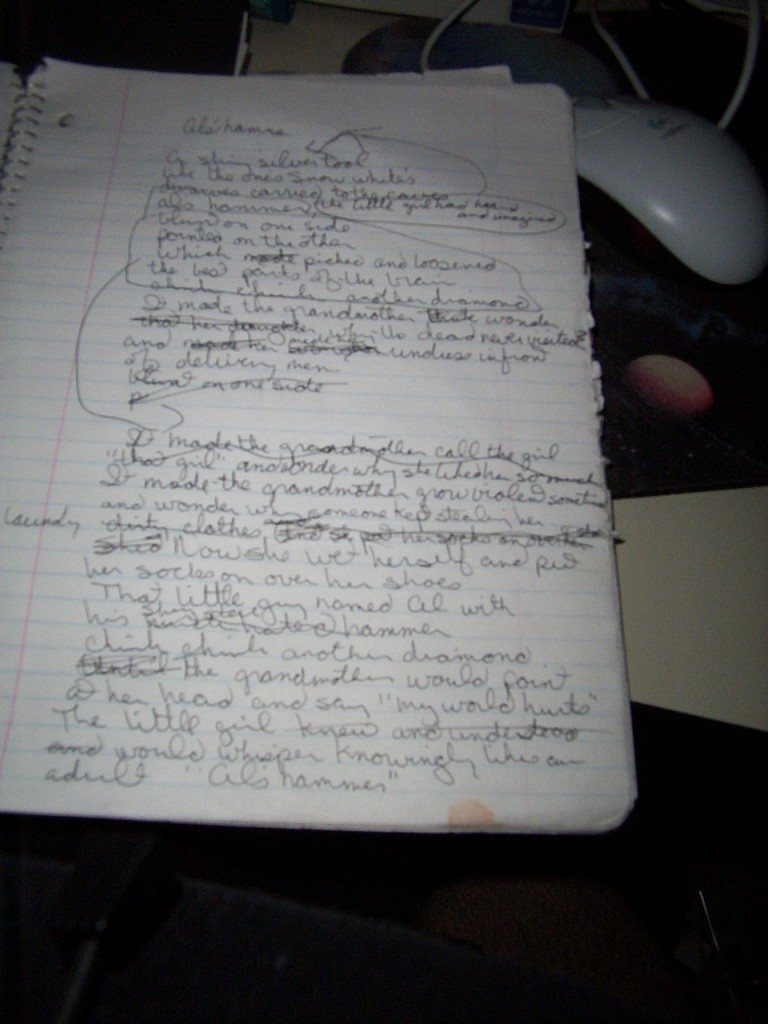 Als hamme
A shiny silver tool
like the ones Snow white's
dwarves carried to the caves
als hammer, (the little girl had heard
and imagined
blunt on one side
pointed on the other
which made picked and loosened
the best parts of the brain
chink chink another diamond
It made the grandmother think wonder
that her daughter, why the dead never visited?
and made her made her undress infront
of delivery men
blunt on one side
P
It made the grandmother call the girl
"that girl" and wonder why she likes her so much
It made the grandmother grow violent sometimes
and wonder why someone kept stealing her
laundry
dirty clothes and she put her socks on over her
shoes Now she wet herself and put
her socks on over her shoes
That little guy named Al with
his hammer
chink chink another diamond
Until the grandmother would point
at her head and say "my world hurts"
The little girl knew and understood
and would whisper knowingly like an
adult "Als hammer"